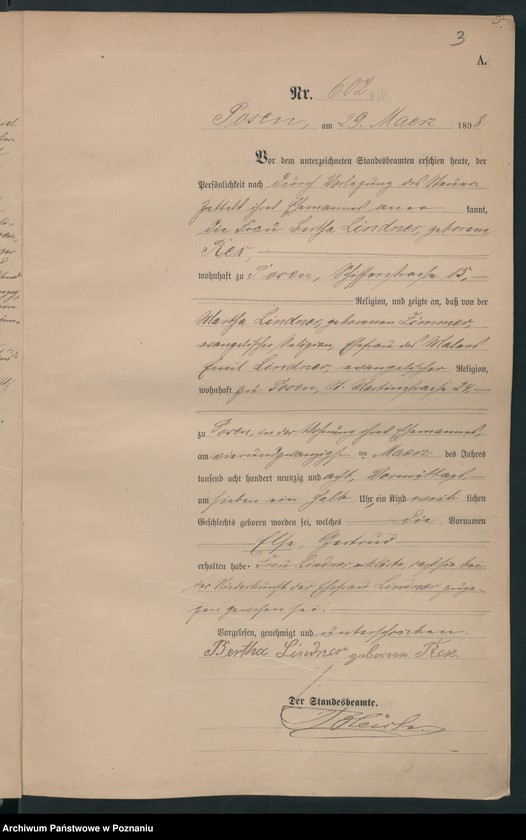 3
A.
Nr. 602
Posen, am 29. Maerz 1898.
Vor dem unterzeichneten Standesbeamten erschien heute, der
Persönlichkeit nach durch Vorlegung des Steuer-
zettels ihres Ehemannes aner kannt,
die Frau Bertha Lindner, geborene
Rex,
wohnhaft zu Posen, Schifferstrasse 15,
Religion, und zeigte an, daß von der
Martha Lindner, geborenen Zimmer,
evangelischer Religion, Ehefrau des Malers
Emil Lindner, evangelischer Religion,
wohnhaft zu Posen, St. Martinstrasse 24,
zu Posen, in der Wohnung ihres Ehemannes,
am vierundzwanzigsten Maerz des Jahres
tausend acht hundert neunzig und acht, Vormittags
um sieben ein halb Uhr, ein Kind weib lichen
Geschlechts geboren worden sei, welches die Vornamen
Else, Gertrud
erhalten habe. Frau Lindner erklärte, daß sie bei
der Niederkunft der Ehefrau Lindner zuge-
gen gewesen sei.
Vorgelesen, genehmigt und unterschrieben.
Bertha Lindner geborene Rex.
Der Standesbeamte.
Archiwum Państwowe w Poznaniu